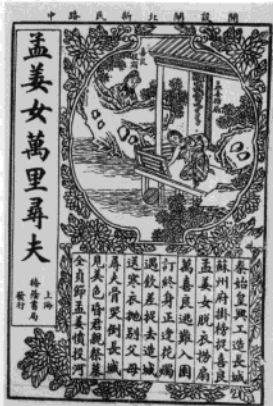 開設閘北新民路中
孟姜女萬里尋夫
上海
椿蔭書局
發行
秦始皇興工造長城
蘇州府掛榜捉喜良
孟姜女脫衣撈扇
萬喜良逃難入園
訂終身正逢花燭
遇欽差捉去造城
送寒衣拋別父母
尋夫骨哭倒長城
見美色昏君親祭墓
全貞節孟姜憤投河